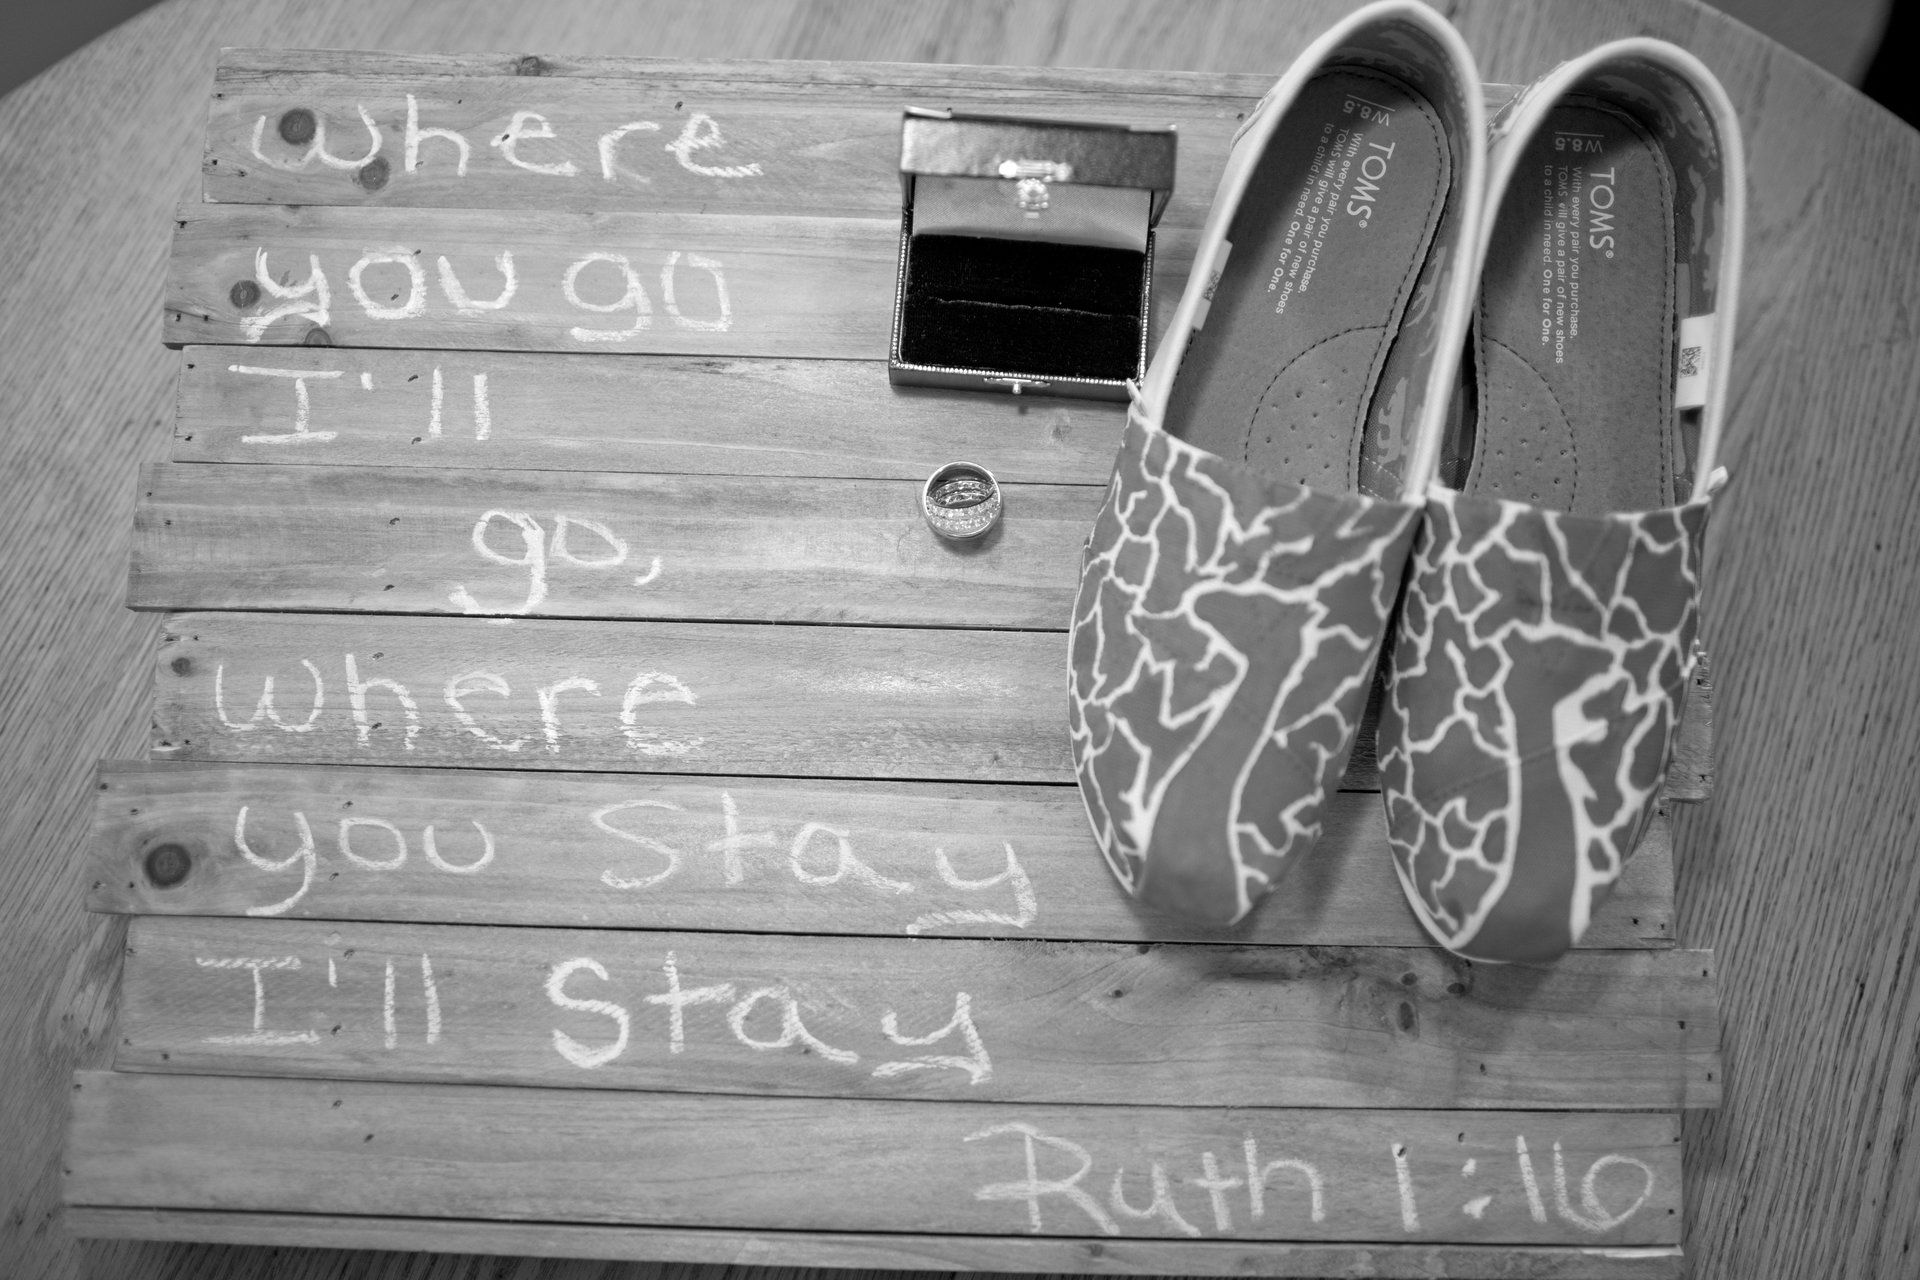 where
you go
I'll
go,
where
you Stay
I'll Stay
Ruth 1:16
W8.5
TOMS®
With every pair you purchase,
TOMS will give a pair of new shoes
to a child in need. One for One.
W8.5
TOMS®
With every pair you purchase,
TOMS will give a pair of new shoes
to a child in need. One for One.